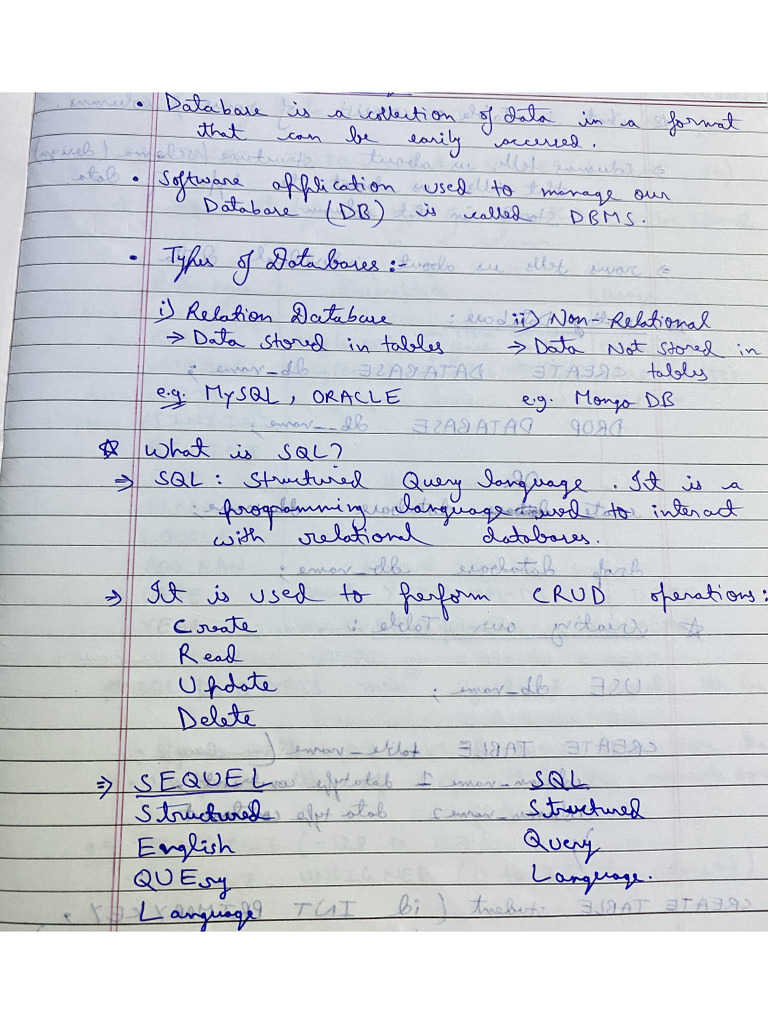 • Database is a collection of data in a format
that can be easily accessed.
• Software application used to manage our
Database (DB) is called DBMS.
• Types of Databases :-
i) Relation Database ii) Non-Relational
→ Data stored in tables → Data Not stored in
tables
e.g. MySQL, ORACLE e.g. Mongo DB
☆ What is SQL?
⇒ SQL : Structured Query language. It is a
programming language used to interact
with relational databases.
⇒ It is used to perform CRUD operations:
Create
Read
Update
Delete
⇒ SEQUEL SQL
Structured Structured
English Query
QUEry Language.
Language